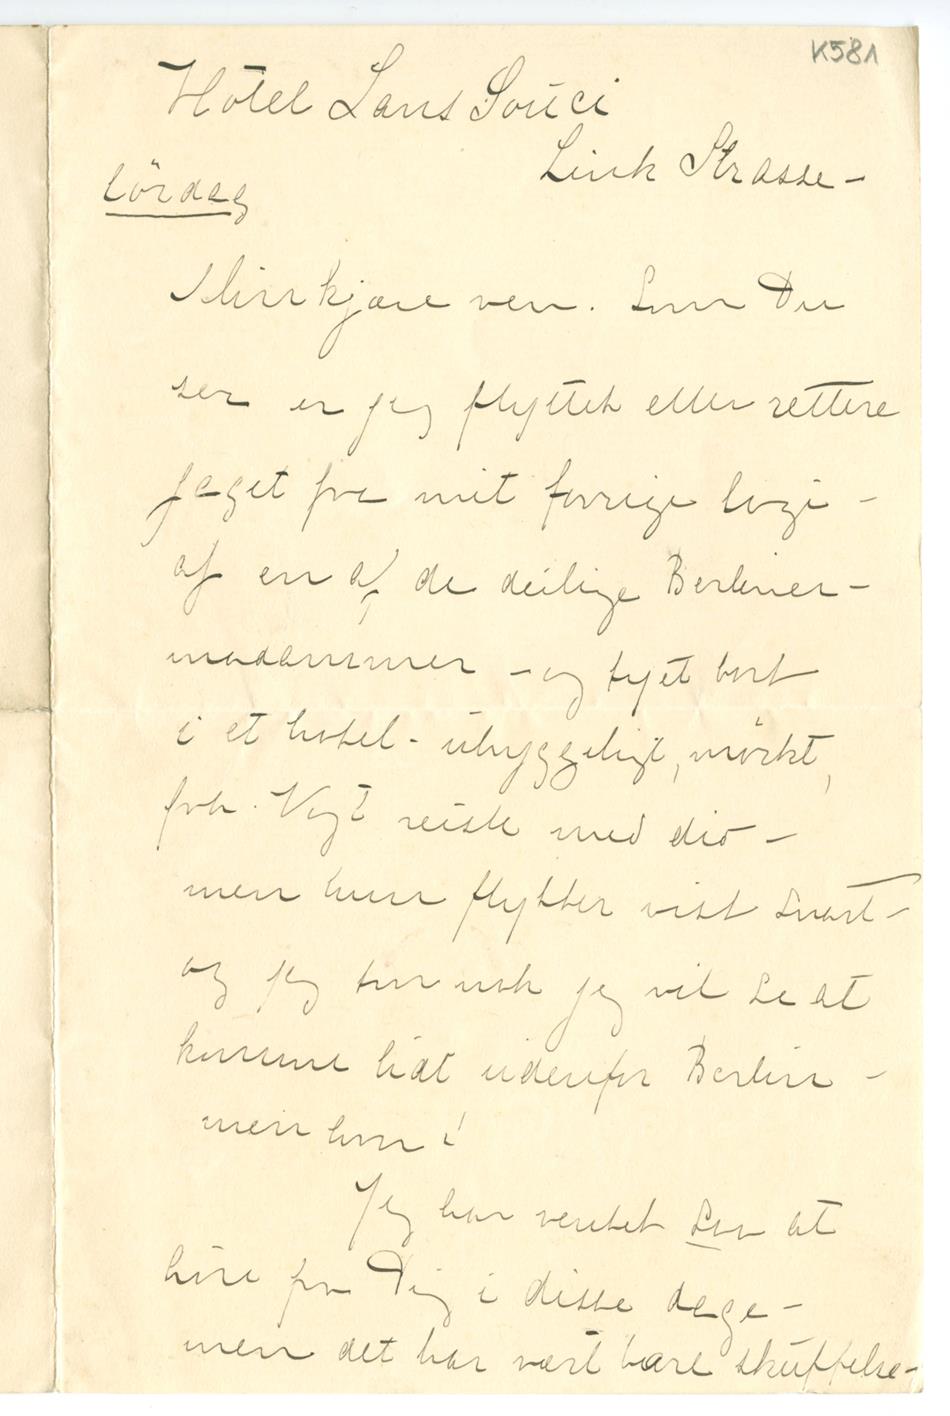 K581
Hôtel Sans Souci
Link Strasse –
Lördag
Min kjære ven. Som Du
ser er jeg flyttet eller rettere
jaget fra mit forrige logi –
af en af de deilige Berliner –
madammer – og tyet bort
i et hotel – uhyggeligt, mörkt,
Vogt reiste med dio –
men hun flytter vist snart –
og jeg tror nok jeg vil se at
komme lidt udenfor Berlin –
men hvor!
Jeg har ventet saa at
höre fra Dig i disse dage –
men det har vært bare skuffelse –